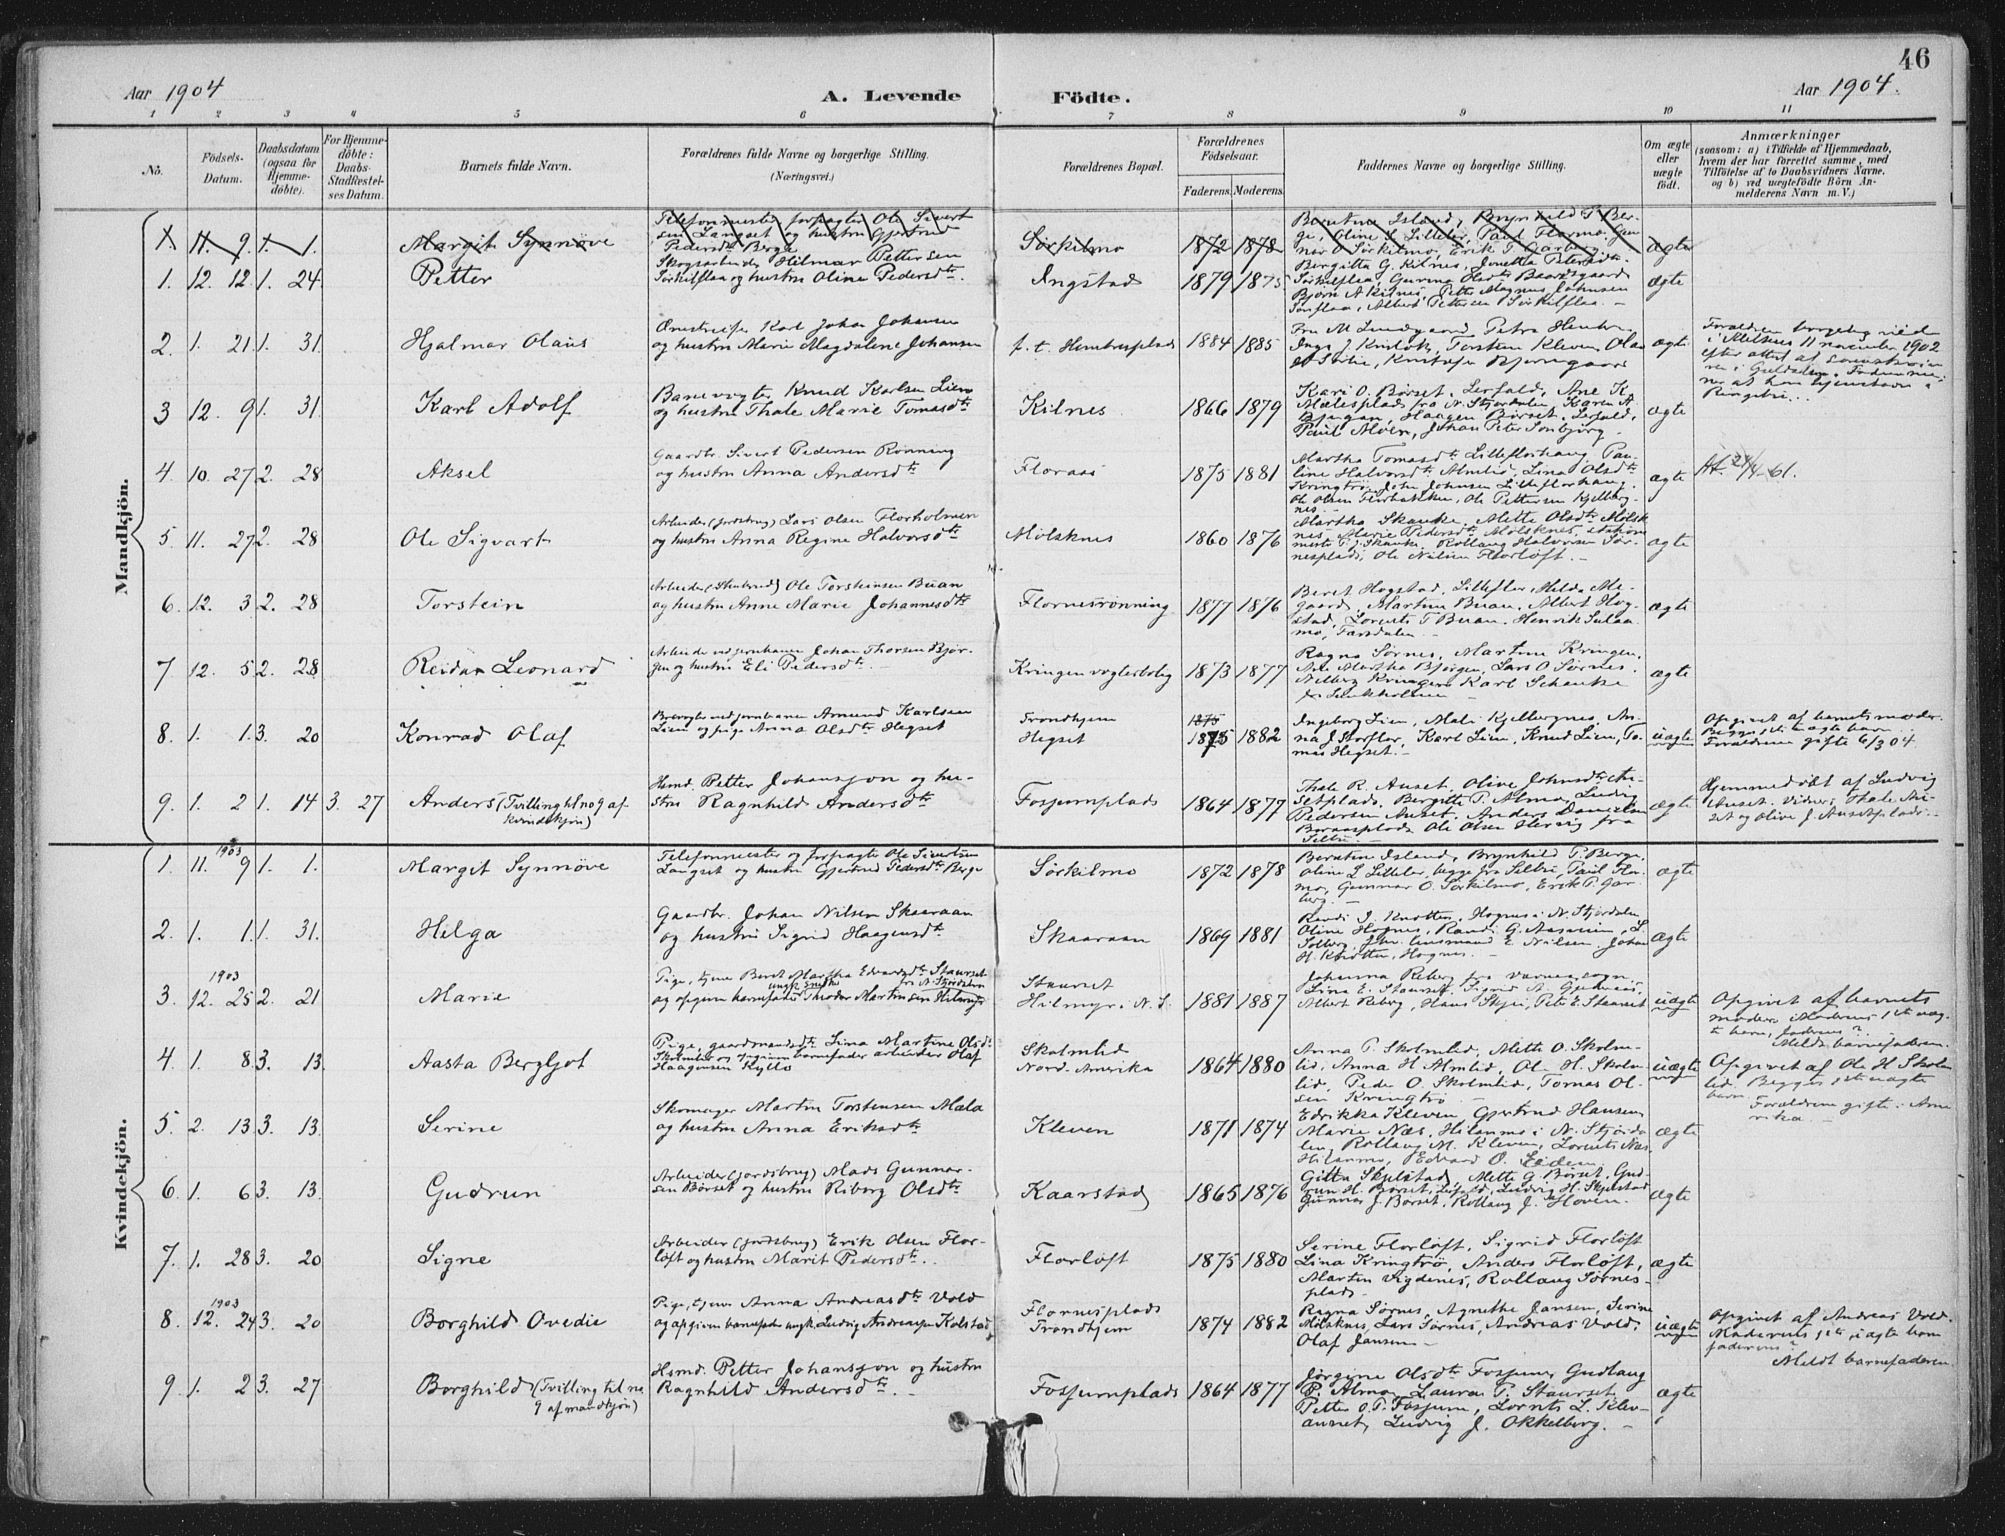 46
Aar 1904
A. Levende Födte.
Aar 1904.
1 2 3 4 5 6 7 8 9 10 11
No.
Födsels-Datum.
Daabsdatum (ogsaa for Hjemmedöbte).
For Hjemmedöbte: Daabs-Stadfestelses Datum.
Barnets fulde Navn.
Forældrenes fulde Navne og borgerlige Stilling.
(Næringsvei.)
Forældrenes Bopæl.
Forældrenes Födselsaar.
Faderens. Moderens.
Faddernes Navne og borgerlige Stilling.
Om ægte eller uægte födt.
Anmærkninger
(saasom: a) i Tilfælde af Hjemmedaab,
hvem der har forrettet samme, med
Tilföielse af to Daabsvidners Navne.
og b) ved uægtefödte Börn An-
melderens Navn m. V.)
Mandkjön.
1. 11. 9. 1. 1. Margit Synnöve
Telefonmester forpagter Ole Sivert
sen Langset og hustru Gjertrud
Pedersdtr Berge
Sörkilmo 1872 1878
Berntine Island, Brynhild P. Ber-
ge, Oline L. Lilleler, Paul Flormo, Gun
nar O Sörkilmo, Erik P. Garberg
ægte
1. 12. 12. 1. 24 Petter
Skogsarbeider Hilmar Pettersen
Sörkilflaa og hustru Oline Pedersdtr.
Ingstad 1879 1875
Bergitta G. Kilnes, Jonetta Petersdtr
Sörkilflaa, Gurina Olsdtr Baardsgaard
Björn A Kilnes, Petter Magnus Johnsen
Sörflaa, Albert Pettersen Sörkilflaa. -
ægte
2. 1. 21. 1. 31. Hjalmar Olaus
Karl Johan Johansen
og hustru Marie Magdalene Johansen
p.t. Hembreplads 1884 1885
Fru M Lundgaard, Petra Hembre
Inga J. Knislök, Torsten Kleven, Olav
Kristofer Bjerregaard
ægte
Forældrene borgerlig viede
i Melhus 11 november 1902
3 12. 9. 1. 31. Karl Adolf
Banevogter Knud Karlsen Lien
og hustru Thale Marie Tomasdtr
Kilnes 1866 1879
Kari O. Børset, Lerfald, Ane K.
Mælesplads fra N. Stjørdalen, Karen A.
Bjørgan, Haagen Børset, Lerfald,
Paul Aloen, Johan Peter Sonbjørg
ægte
4. 10. 27. 2. 28 Aksel
Gaardbr. Sivert Pedersen Rönning
og hustru Anna Andersdtr
Floraas 1875 1881
Martha Tomasdtr Lilleflorhaug, Pau-
line Halvorsdtr Almlid, Lina Olsdtr
Kringtrø, John Johnsen Lilleflorhaug,
Ole Olsen Florbakken, Ole Pettersen Kjelberg-
nes -
ægte
Att. 24/4-61.
5. 11. 27. 2. 28 Ole Sigvart
Arbeider (jordsbrug) Lars Olsen Florholmen
og hustru Anna Regine Halvorsdtr
Mölsknes 1860 1876
Martha Skanke, Mette Olsdtr Mölsk
nes, Marie Pedersdtr Mölsknes,
Rollaug Halvorsen Sør-
nesplads, Ole Nilsen Florløft. -
ægte
6. 12. 3. 2. 28 Torstein
Arbeider (Stenbrud) Ole Torsteinsen Buan
og hustru Anne Marie Johannesdtr
Flornesrønning 1877 1876
Beret Hogstad, Lilleflor, Helda Me-
gaard, Martin Buan, Albert Hog-
stad, Lorents T Buan, Henrik Sulaa-
mo, Færsdalen -
ægte
7 12. 5. 2. 28. Reidar Leonard
Arbeider ved jernbanen Johan Thorsen Bjør-
gen og hustru Eli Pedersdtr. -
Kringen vogterbolig 1873 1877
Ragna Sørnes, Martine Kringen,
Ane Martha Bjørgen, Lars O. Sørnes,
Nilberg Kringen, Karl Schanke
ægte
8. 1. 1. 3. 20 Konrad Olaf
ved jernbanen Amund Karlsen
Lien og pige Anna Olsdtr Hegset
Trondhjem
Hegset
1875
1875 1882
Ingeborg Lien, Mali Kjelbergnes, An-
na J Storflor, Karl Lien, Knud Lien, To-
mas Hegset. -
uægte
Opgivet af barnets moder.
Begges 1ste uægte barn.
Forældrene gifte 6/3 04.
9. 1. 2 1. 14 3. 27 Anders (Tvilling til no 9 af
kvindekjön)
Hsmd. Petter Johansson og hu-
stru Ragnhild Andersdtr
Fossumplads 1864 1877
Thale R. Auset, Olive Johnsdtr Au-
setplads, Bergitte P. Almo, Ludvig
Pedersen Auset, Anders Danielsen
Boraasplads, Ole Olsen Hervig fra
Selbu -
ægte
Hjemmedöbt af Ludvig
Auset. Vidner: Thale Au-
set og Olive J. Ausetplads. -
Kvindekjön.
1903
1. 11. 9 1. 1. Margit Synnöve
Telefonmester og forpagter Ole Sivertsen
Langset og hustru Gjertrud Pedersdtr Berge
Sörkilmo 1872 1878
Berntine Island, Brynhild P. Berge,
Oline L Lilleler, begge fra Selbu, Paul Flor-
mo, Gunnar O. Sörkilmo, Erik P. Gar-
berg. -
ægte
2. 1. 1. 1. 31. Helga
Gaardbr. Johan Nilsen Skaaraan
og hustru Sigrid Haagensdtr
Skaaraan 1869 1881
Randi J. Knotten, Hognes i N. Stjørdalen,
Oline Hognes, Randi G. Aasarum, L
Solberg, E. Nilsen, Johan
H. Knotten, Hognes. -
ægte
1903
3. 12. 25 2. 21 Marie
Pige, tjener Beret Martha Edvardsdtr Staurset
ungk. fra N. Stjørdalen
og opgiven barnefader Teodor Martinsen Hilmyr
Stauret
Hilmyr i N. S. 1881 1887
Johanna Reberg fra Varnes sogn,
Lina E. Stauret, Sigrid A. Gjelnes,
Albert Reberg, Hans Skjei, Peter E. Stauret
uægte
Opgivet af barnets
moder. Moderens 1ste uæg-
te barn, faderens?
Meldt barnefaderen.
4. 1. 8 3. 13. Aasta Bergljot
Pige, gaardmandsdtr Lina Martine Olsdtr
Skolmlid og opgiven barnefader arbeider Olaf
Haagensen Kyllo
Skolmlid
Nord-Amerika 1864 1880
Anna P. Skolmlid, Mette O. Skolm-
lid, Anna H Almlid, Ole H. Skolm
lid, Peder O. Skolmlid, Tomas Ol-
sen Kringtrø -
uægte
Opgivet af Ole H Skolm
lid. Begges 1ste uægte
barn.
Forældrene gifte i Ame
rika. -
5. 2. 13 3. 13. Serine
Skomager Martin Torstensen Mæla
og hustru Anna Eriksdtr
Kleven 1871 1874
Edrikka Kleven, Gjertrud Hansen,
Marie Næs, Hilanmo i N. Stjørda-
len, Rollaug M. Kleven, Lorents Næs
Hilanmo, Edvard O. Eidem
ægte
6. 1. 6 3. 13. Gudrun
Arbeider (jordsbrug) Mads Gunnar-
sen Børset og hustru Riborg Olsdtr
Kaarstad 1865 1876
Gitta Skjelstad, Mette G Børset, Gud-
run H. Børset, Lerfald, Ludvig H. Skjelstad
Gunnar J. Børset, Rollaug J. Hoven. -
ægte
7. 1. 28 3. 20 Signe
Arbeider (jordsbrug) Erik Olsen Flor-
löft og hustru Marit Pedersdtr. -
Florlöft 1875 1880
Serine Florlöft, Sigrid Florlöft
Lina Kringtrø, Anders Florlöft,
Martin Vigdenes, Rollaug Sørnes-
plads -
ægte
1903
8. 12. 24 3. 20 Borghild Ovedie
Pige, tjener Anna Andreasdtr Vold
og opgiven barnefader ungk. Ludvig Andreassen Kolstad
Flornesplads
Trondhjem 1874 1882
Ragna Sørnes, Agnethe Jansen, Serine
Mölsknes, Lars Sørnes, Andreas Vold,
Olaf Jansen -
uægte
Opgivet af Andreas Vold.
Moderens 1ste uægte barn
faderens?
Meldt barnefaderen
9. 1. 2 3. 27 Borghild (Tvilling til no
9 af mandkjön)
Hsmd. Petter Johansson og hustru
Ragnhild Andersdtr. -
Fossumplads 1864 1877
Jørgine Olsdtr Fossum, Gudlaug
P. Almo, Laura P. Staurset,
Petter O. P. Fossum, Lornts L. Klev-
aunet, Ludvig J. Okkelberg. -
ægte